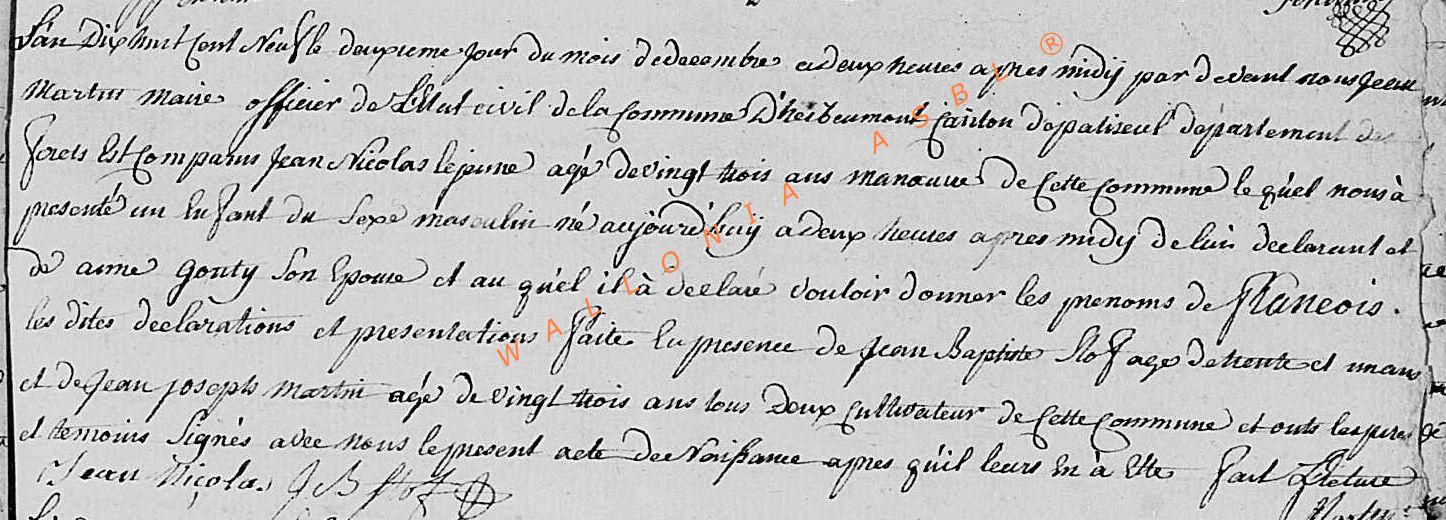 L'an Dix huit Cent Neuf le deuxieme Jour du mois de decembre a deux heures apres midÿ par devant nous Jean
Martin Maire officier de L'Etat civil de la Commune D'herbeumont Canton de patiseul departement des
forets Est Comparus Jean Nicolas lejeune agé de vingt trois ans manœuvre de Cette Commune le quel nous à
presenté un Enfant du Sexe masculin né aujourd'huÿ a deux heures apres midÿ de lui declarant et
de anne gouty Son Epouse et au quel il à declaré vouloir donner les prenoms de François.
les dites declarations et presentations faite En presence de Jean Baptiste Slof age de trente et un ans
et de Jean joseph Martin agé de vingt trois ans tous Deux Cultivateur de Cette Commune et onts les pere
et temoins Signés avec nous le present acte de Naissance apres qu'il leurs En à Ette fait Lecture
Jean Nicolas J B Slof Martin
WALLONIA ASBL ®